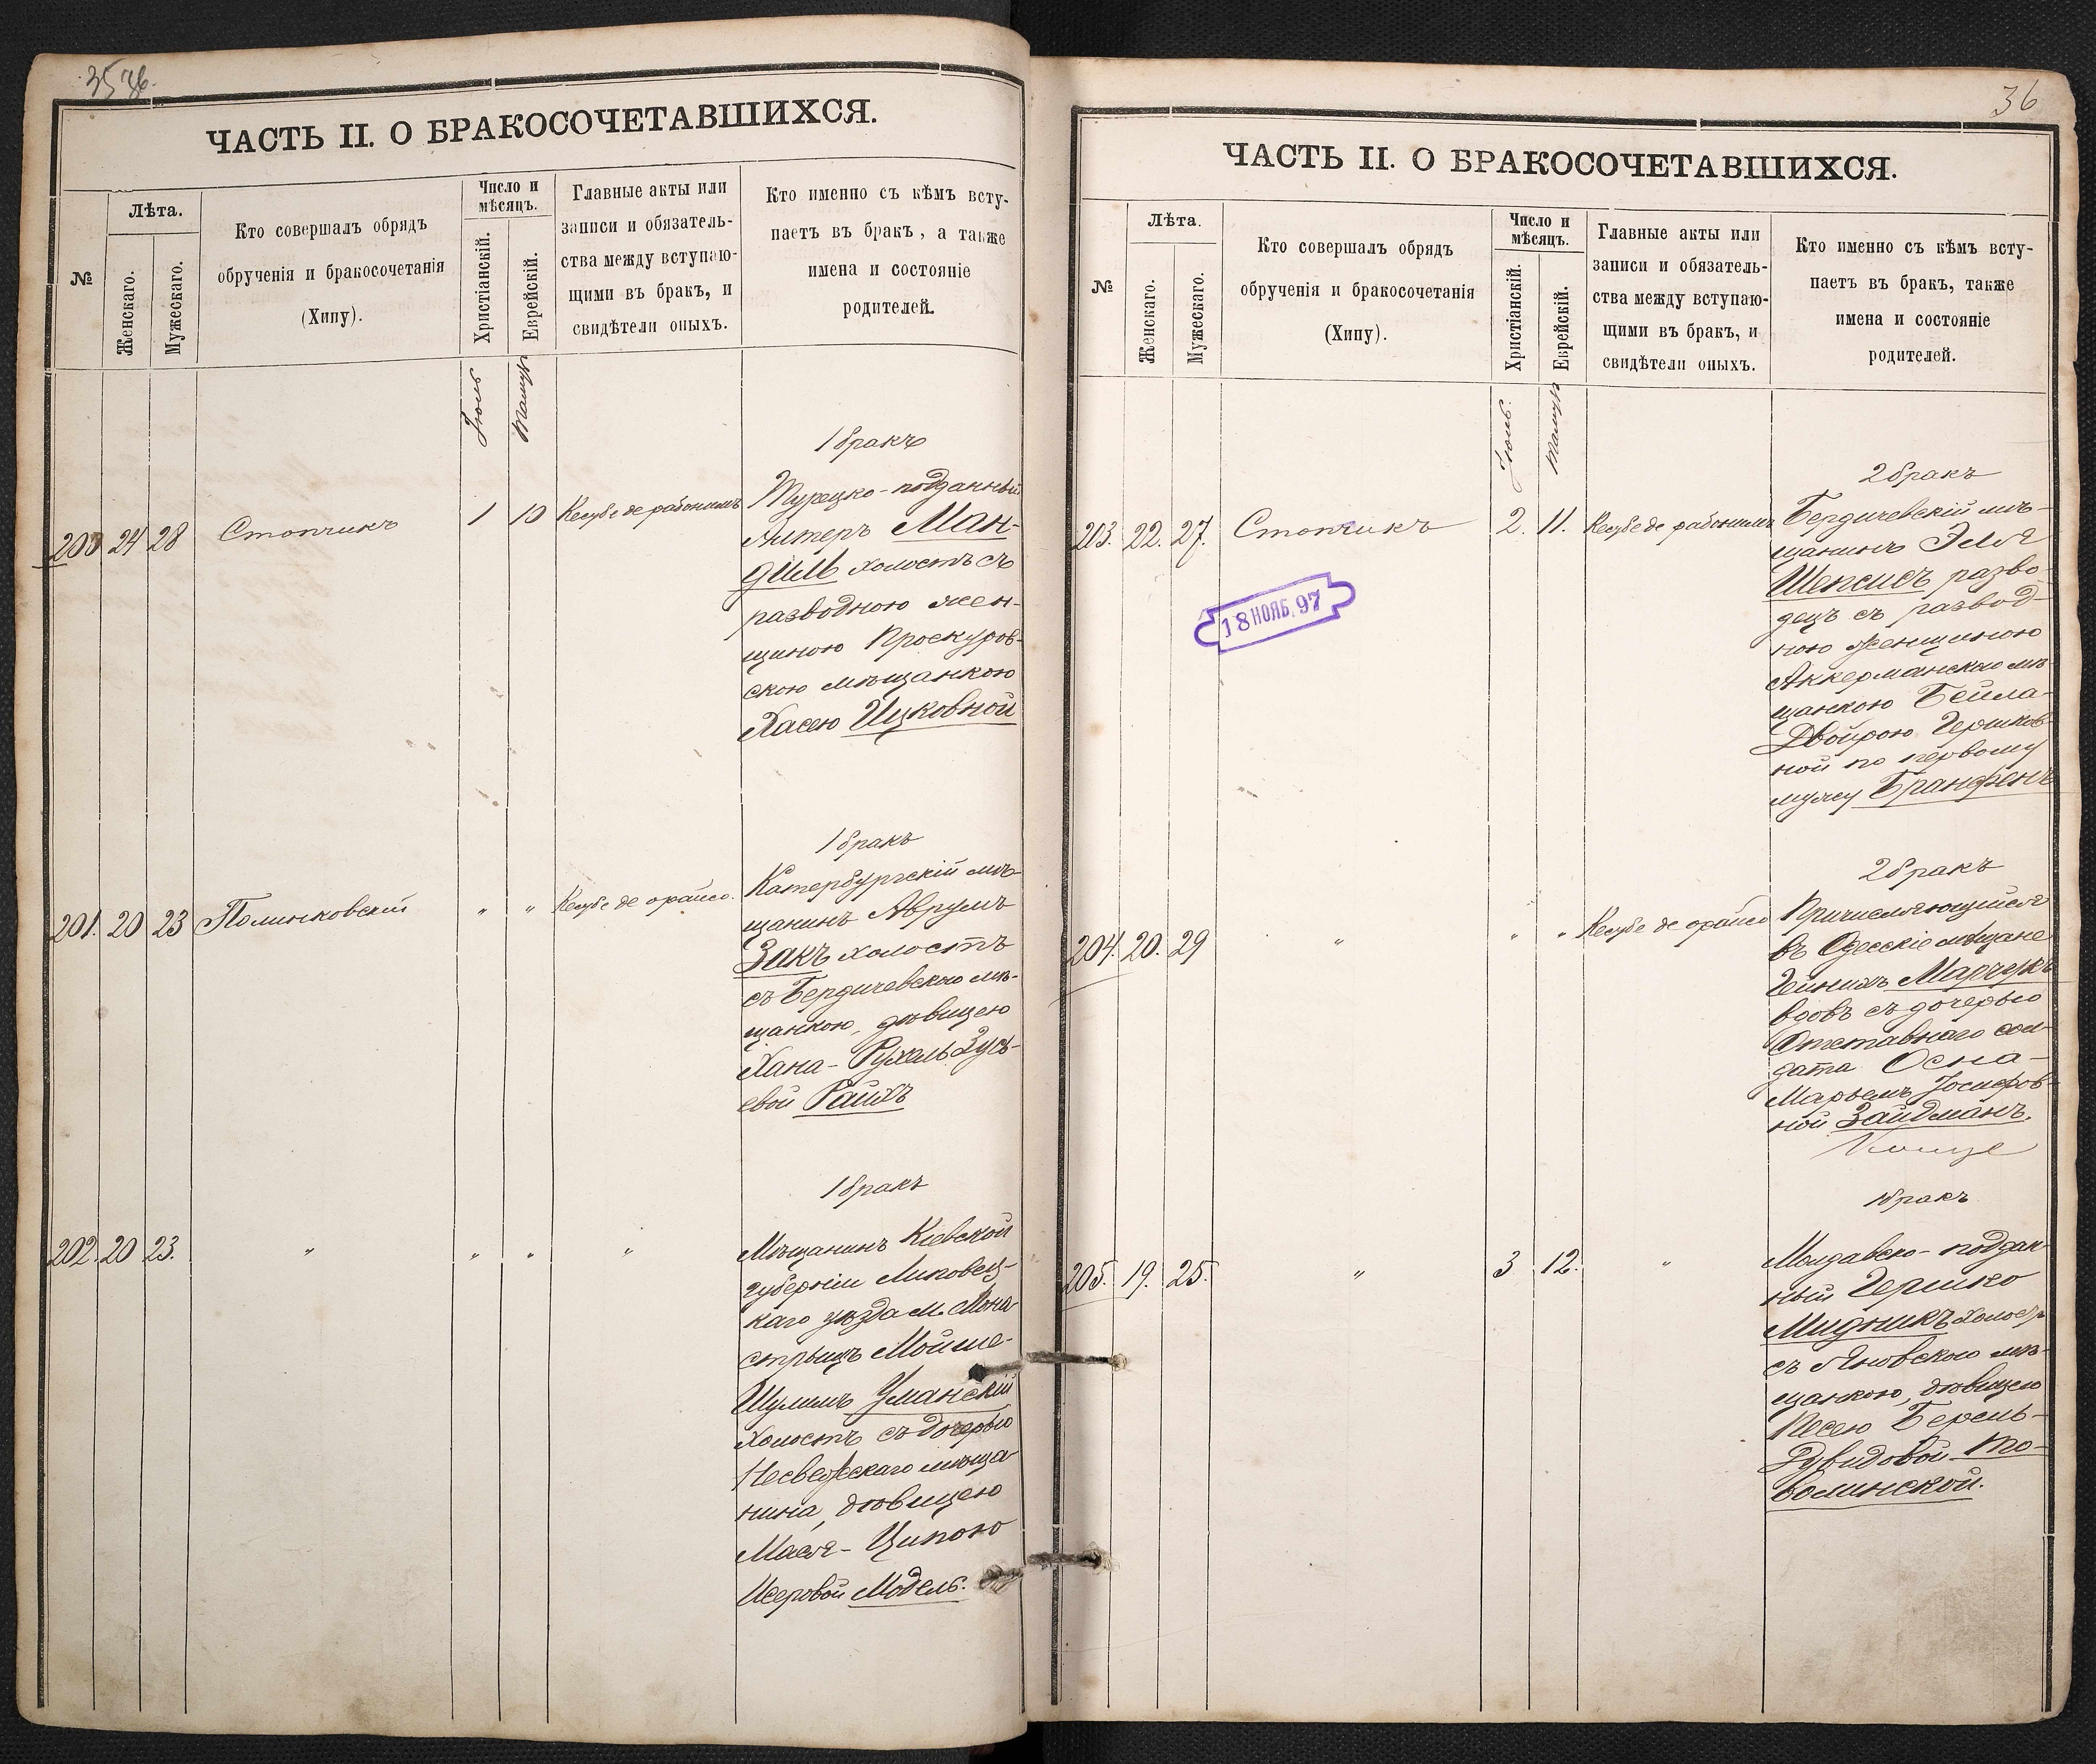 ЧАСТЬ II. О БРАКОСОЧЕТАВШИХСЯ.
№
Лѣта.
Женскаго.
Мужескаго.
Кто совершалъ обрядъ
обрученія и бракосочетанія
(Хипу).
Число и
мѣсяцъ.
Христіанскій.
Еврейскій.
Главные акты или
записи и обязатель-
ства между вступаю-
щими въ бракъ, и
свидѣтели оныхъ.
Кто именно съ кѣмъ всту-
паетъ въ бракъ, а также
имена и состояніе
родителей.
Іюль
Тамузъ
200 24 28 Стопчикъ 1 10 Кесубе де
1 бракъ
Турецко-подданный
Литеръ Ман-
дил холостъ съ
разводною жен-
щиною Проскуров-
скою мѣщанкою
Хасею Ицковной
201. 20 23 Полинковскій " " Кесубе де
1 бракъ
Катербургскій мѣ-
щанинъ Аврумъ
Закъ холостъ
съ Бердичевскою мѣ-
щанкою, дѣвицею
Хана-Рухель Зусь-
евой Райхъ
202. 20 23. " " " "
1 бракъ
Мѣщанинъ Кіевской
губерніи Липовец-
каго уѣзда м. Мона-
стрыщъ Мойше-
Шулимъ Уманскій
холостъ съ дочерью
Несвежскаго мѣща-
нина, дѣвицею
Мася-Ципою
Исеровой Модель.
36
ЧАСТЬ II. О БРАКОСОЧЕТАВШИХСЯ.
№
Лѣта.
Женскаго.
Мужескаго.
Кто совершалъ обрядъ
обрученія и бракосочетанія
(Хипу).
Число и
мѣсяцъ.
Христіанскій.
Еврейскій.
Главные акты или
записи и обязатель-
ства между вступаю-
щими въ бракъ, и
свидѣтели оныхъ.
Кто именно съ кѣмъ всту-
паетъ въ бракъ, также
имена и состояніе
родителей.
Іюль.
Тамузъ
203. 22. 27. Стопчикъ 2. 11. Кесубе де
18 НОЯБ. 97
2 бракъ
Бердичевскій мѣ-
щанинъ Эля
Шепсисъ разво-
децъ съ развод-
ною женщиною
Аккерманскою мѣ-
щанкою Бейла-
Двойрою Гершков-
ной по первому
мужу
204. 20. 29 " " " Кесубе де
2 бракъ
Причисляющійся
въ Одесскіе мѣщане
вдовъ съ дочерью
Отставнаго сол-
дата Осна-
Марьемъ Іосифов-
ной Зайдманъ.
205. 19. 25. " 3 12. "
1 бракъ
Молдавско-поддан-
ный Гершко
Мидникъ холостъ
съ Яновскою мѣ-
щанкою, дѣвицею
Песею Берель-
Дувидовой То-
волинской.